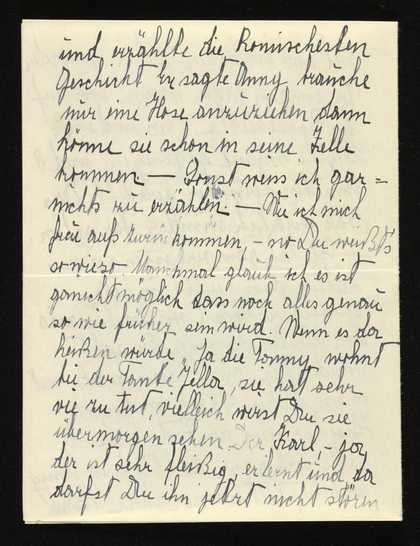 und erzählte die komischesten
Geschicht Er sagte Anny brauche
nur eine Hose anzuziehen dann
könne sie schon in seine Zelle
kommen — Sonst weiss ich gar=
nichts zu erzählen. — Wie ich mich
freu aufs kommen, - no Du weißt's
sowieso. Manchmal glaub ich es ist
garnicht möglich dass noch alles genau
so wie früher sein wird. Wenn es da
heißen würde „Ja die Tommy, wohnt
bei der Tante Jella, sie hat sehr
viel zu tut, vielleich wirst Du sie
übermorgen sehen. Der Karl, - ja,
der ist sehr fleißig, er lernt und da
darfst Du ihn jetzt nicht stören